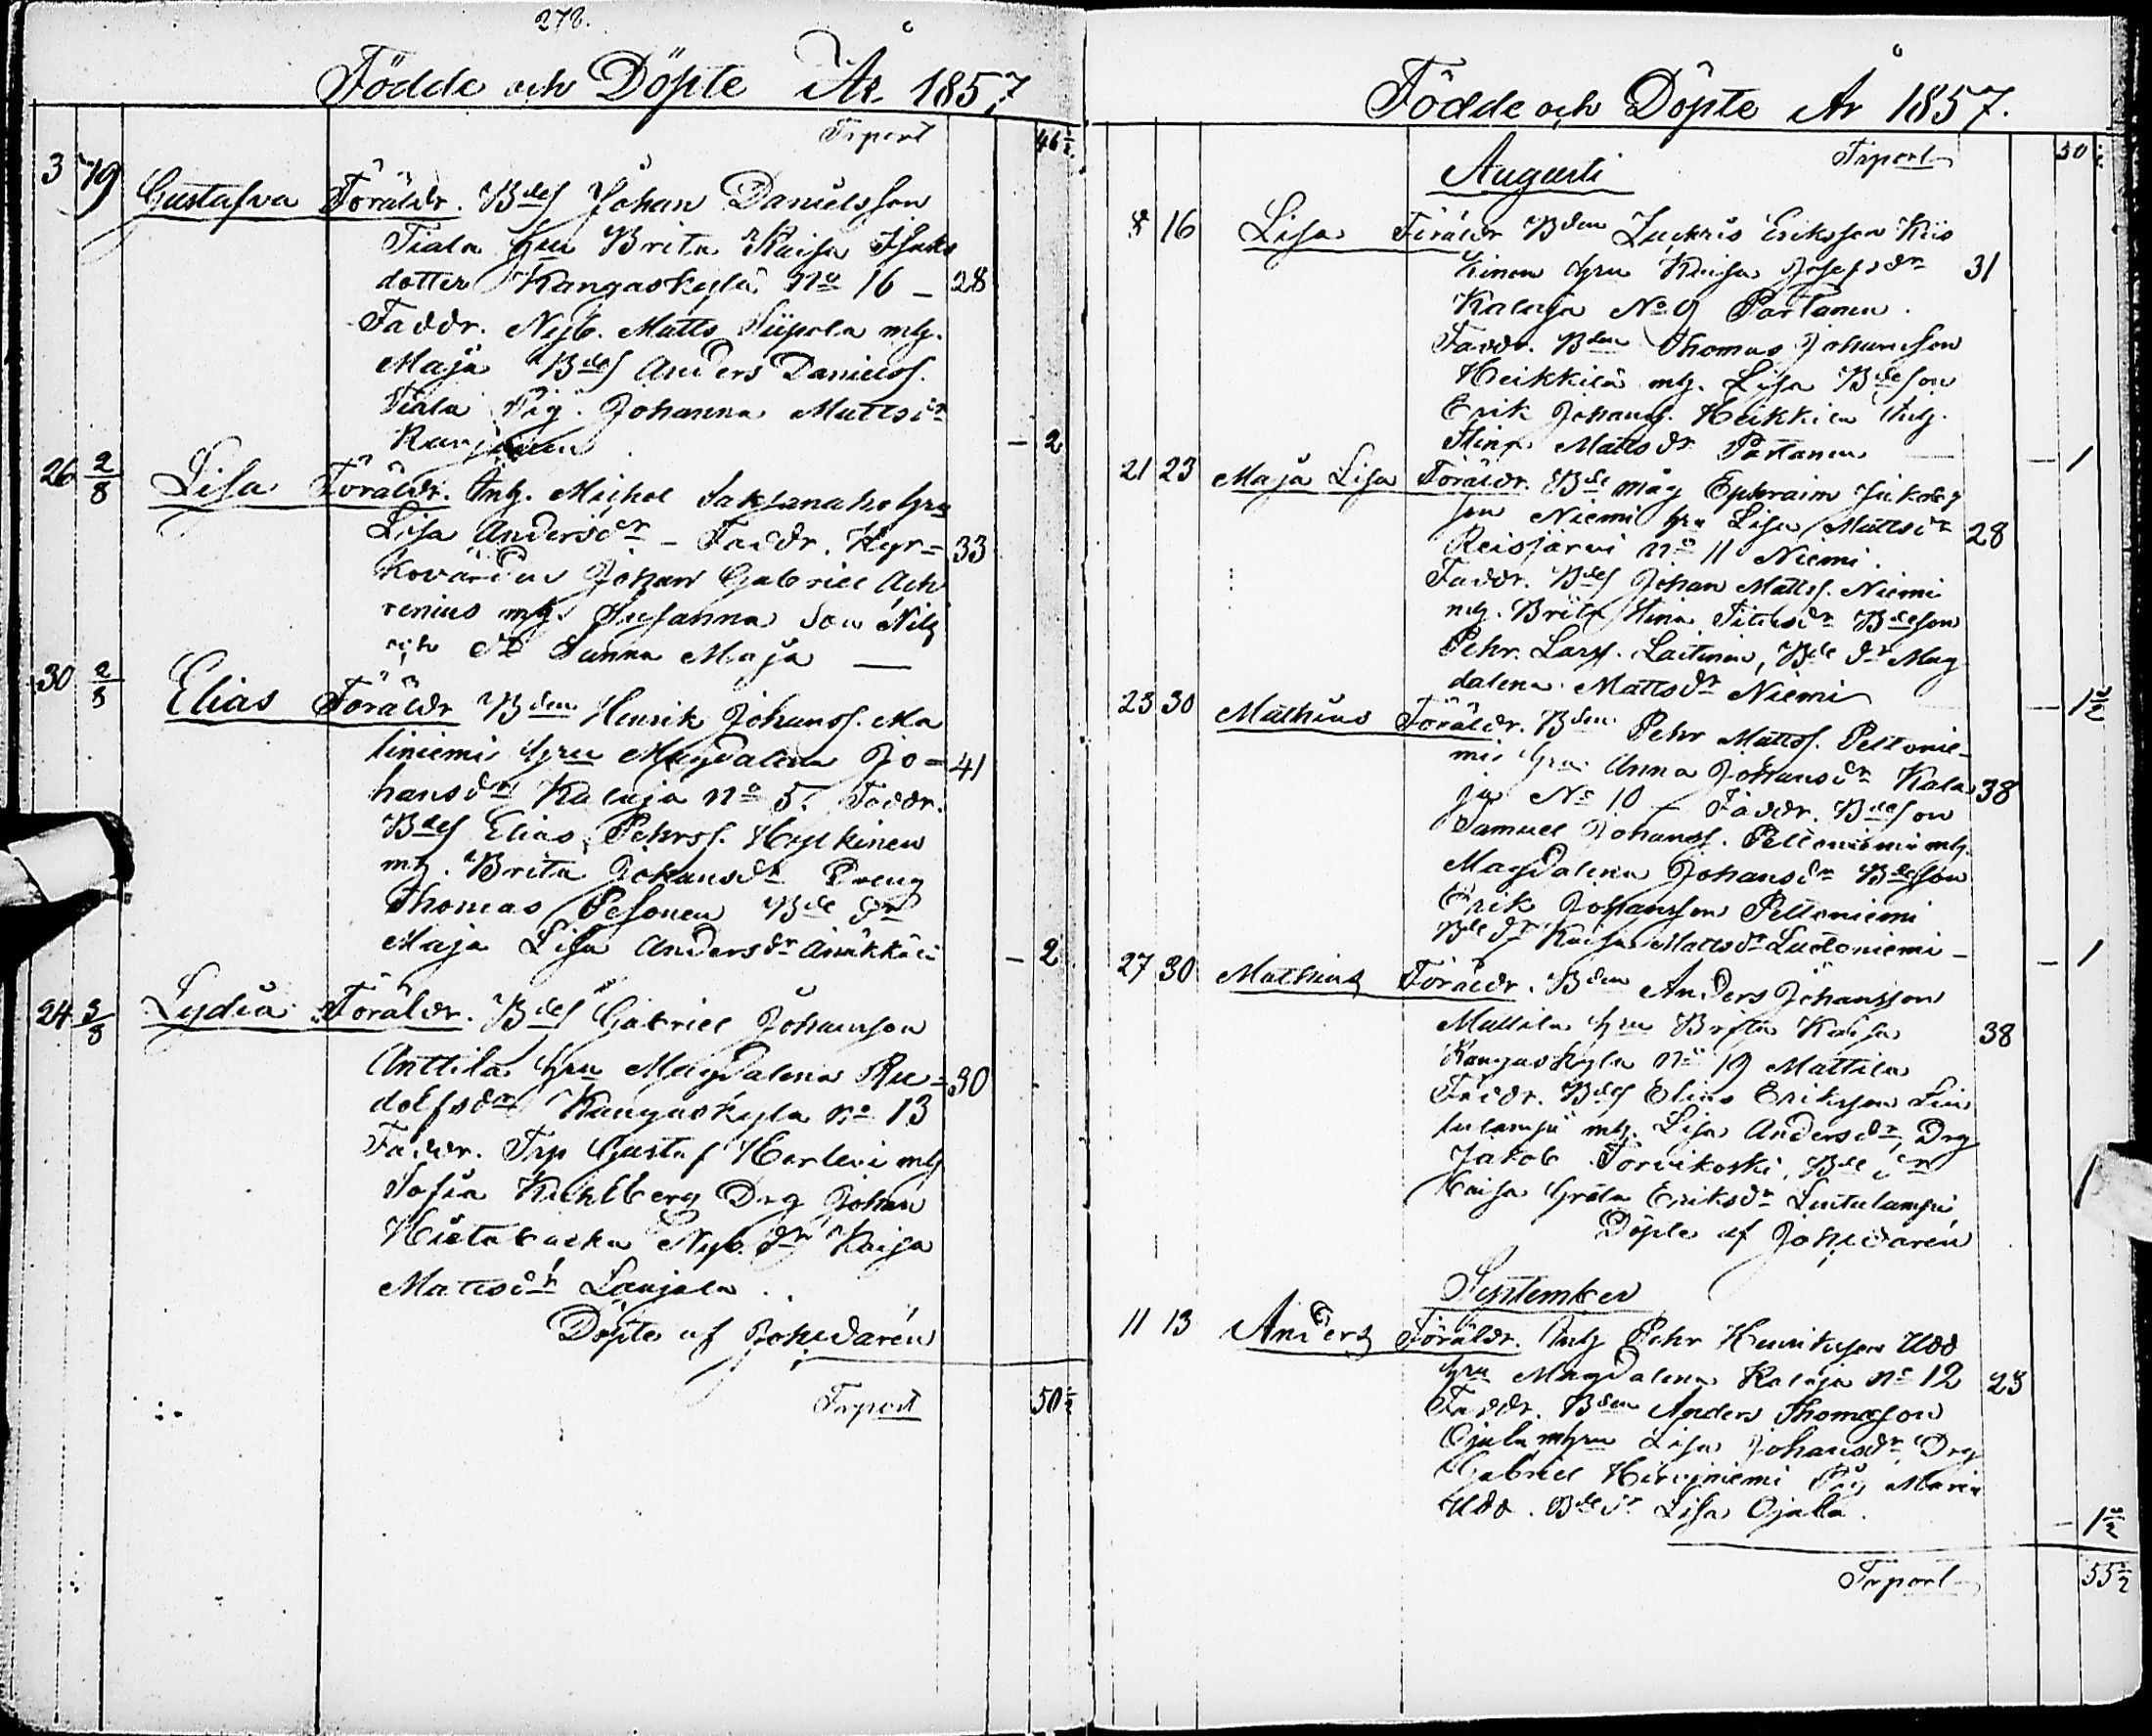 272.
Födde och Döpte År 1857
Trport 46 1/2
3 19 Gustafva Föräldr. Bdes Johan Danielsson
Tiala hru Brita Kaisa Isaks
dotter Kangaskylä No 16 – 28
Faddr. Nyb. Matts Siipola mh.
Maja Bdes Anders Daniels.
Tiala Pig. Johanna Mattsdr
– 2
26 2/8 Lisa Föräldr. Inh. Michel Saksanaho hru
Lisa Andersdr – Faddr. Kyr= 33
kovärden Johan Gabriel Ach
renius mh Susanna Son Nils
och Sanna Maja —
30 2/8 Elias Föräldr Bden Henrik Johanss. Ma
liniemi hru Magdalena Jo= 41
hansdr Kalaja no 5. Faddr.
Bdes Elias Pehrss. Hylkinen
mh. Brita Johansdr Dreng
Thomas Pesonen Bde dr
Maja Lisa Andersdr Änäkkälä – 2
24 3/8 Lydia Föräldr. Bdes Gabriel Johansson
Anttila hru Magdalena Ru= 30
dolfsdr Kangaskyla no 13
Faddr. Trp Gustaf Herlevi mh
Sofia Kuhlberg Drg Johan
Hietabacka Nyb. dr Kaisa
Mattsdr Laujala.
Döpte af Johedaren
Trport 50 1/2
Födde och Döpte År 1857.
Trport 50 1/2
Augusti
8 16 Lisa Föräldr Bden Zackris Eriksson Kiis
kinen hru Kaisa Josefsdr 31
Kalaja No 9 Partanen.
Faddr. Bden Thomas Johansson
Heikkilä mh. Lisa Bdeson
Erik Johanss. Heikkilä Inh.
Stina Mattsdr Partanen – 1
21 23 Maja Lisa Föräldr. Bde måg Ephraim Jakobs
son Niemi hru Lisa Mattsdr 28
Reisjärvi no 11 Niemi.
Faddr. Bdes Johan Matts. Niemi
mh. Brita Stina Bdeson
Pehr Larss. Laitinen, Bde dr Mag
dalena Mattsdr Niemi – 1 1/2
23 30 Mathias Föräldr. Bden Pehr Mattss. Peltonie-
mi hru Anna Johansdr Kala 38
ja No 10 – Faddr. Bdeson
Samuel Johanss. Peltoniemi mh.
Magdalena Johansdr Bdeson
Erik Johansson Peltoniemi
Bde dr Kaisa Mattsdr Luotoniemi – – 1
27 30 Mathias Föräldr. Bden Anders Johansson
Mattila hru Brita Kaisa 38
Kangaskyla no 19 Mattila
Faddr. Bdes Elias Eriksson Lin
tulampi mh. Lisa Andersdr Drg
Jakob Torvikoski, Bde dr 1
Kaisa Greta Eriksdr Lintulampi
Döpte af Johedaren
September
11 13 Anders Föräldr. Inh Pehr Henriksson Udd
hru Magdalena Kalaja no 12 23
Faddr. Bden Anders Thomasson
Ojala mhru Lisa Johansdr Drg
Gabriel Hirviniemi Pig Maria
Udd. Bde dr Lisa Ojala. – 1 1/2
Trport 55 1/2